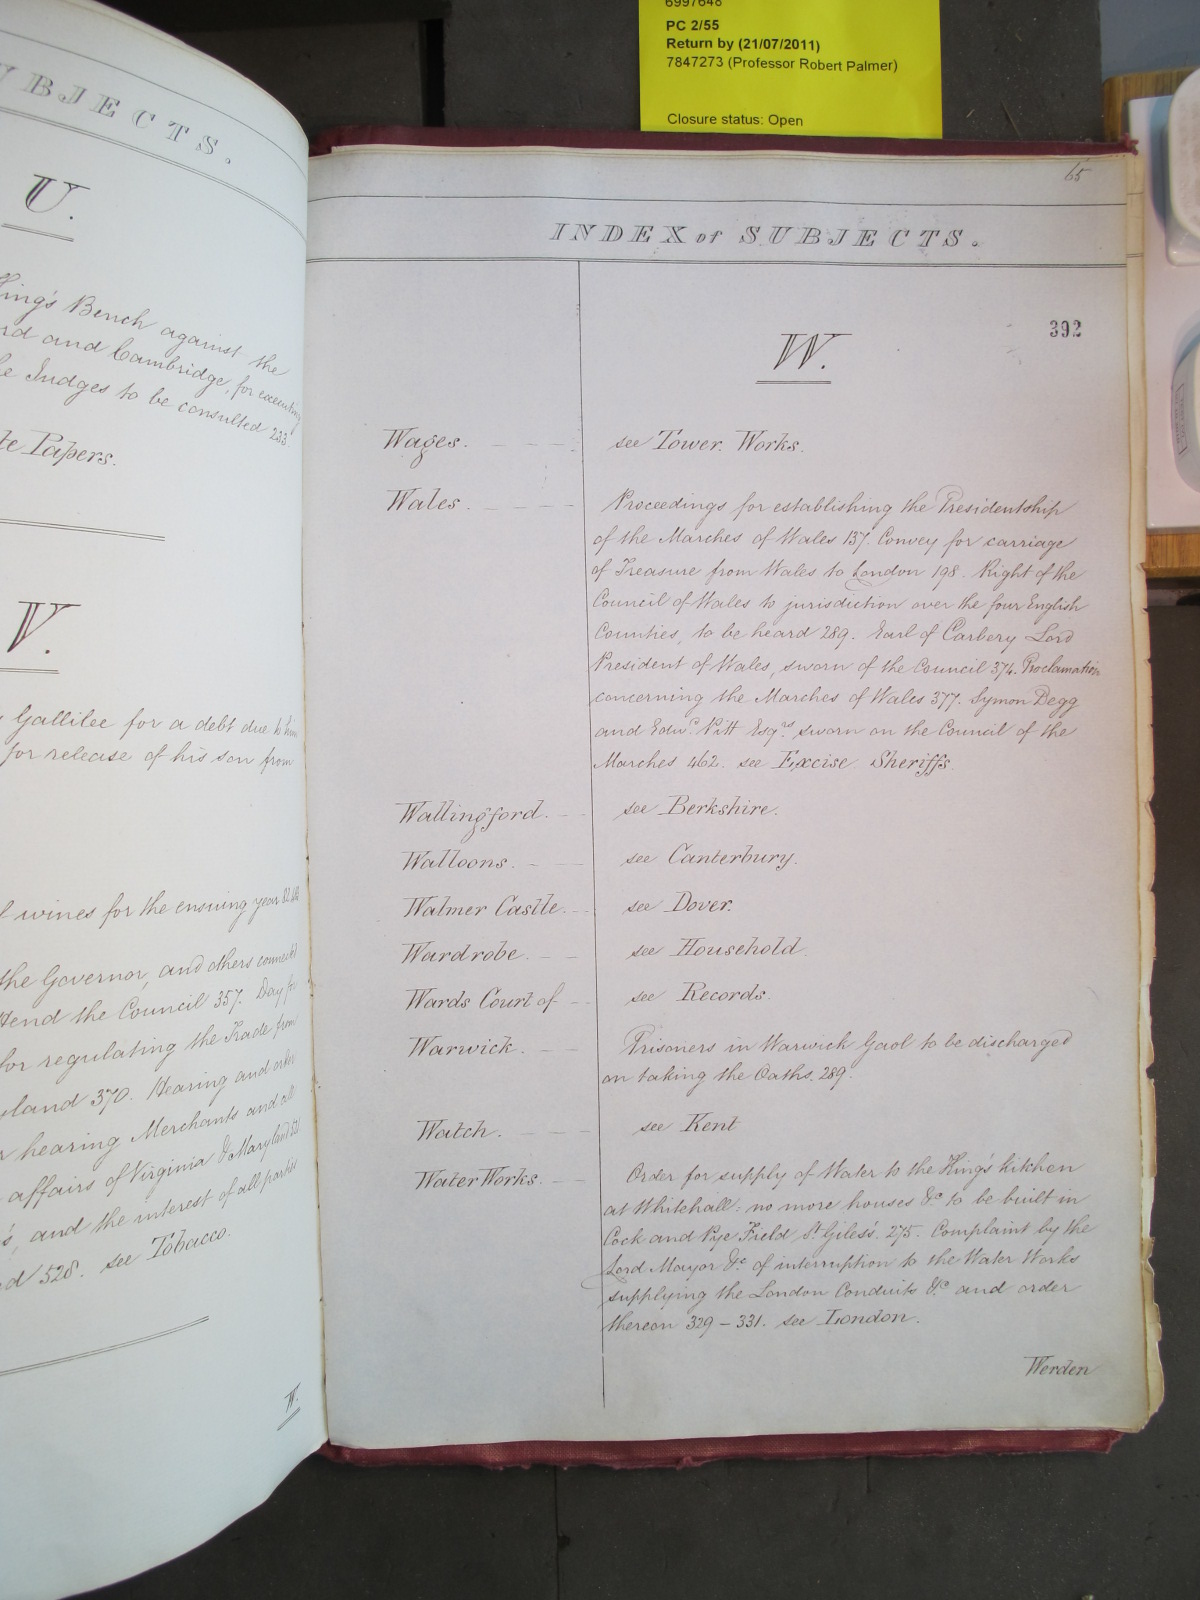 6997648
PC 2/55
Return by (21/07/2011)
7847273 (Professor Robert Palmer)
Closure status: Open
UBJECTS.
U.
King's Bench against the
and Cambridge, for executing
Judges to be consulted 233.
Papers.
V.
Gallilee for a debt due to him
for release of his son from
wines for the ensuing year
the Governor, and others connected
the Council 357. Day for
for regulating the Trade from
370. Hearing and order
hearing Merchants and all
affairs of Virginia & Maryland
and the interest of all parties
528. see Tobacco.
W.
65
INDEX of SUBJECTS.
392
W.
Wages. see Tower. Works.
Wales. Proceedings for establishing the Presidentship
of the Marches of Wales 137. Convey for carriage
of Treasure from Wales to London 198. Right of the
Council of Wales to jurisdiction over the four English
Counties, to be heard 289. Earl of Carbery Lord
President of Wales, sworn of the Council 374. Proclamation
concerning the Marches of Wales 377. Symon Degg
and Edwd. Pitt Esqrs. sworn on the Council of the
Marches 462. see Excise Sheriffs.
Wallingford. see Berkshire.
Walloons. see Canterbury.
Walmer Castle. see Dover.
Wardrobe. see Household.
Wards Court of see Records.
Warwick. Prisoners in Warwick Gaol to be discharged
on taking the Oaths. 289.
Watch. see Kent
Water Works. Order for supply of Water to the King's kitchen
at Whitehall: no more houses &c to be built in
Cock and Pye Field St Giles's. 275. Complaint by the
Lord Mayor &c of interruption to the Water Works
supplying the London Conduits &c and order
thereon 329-331. see London.
Werden